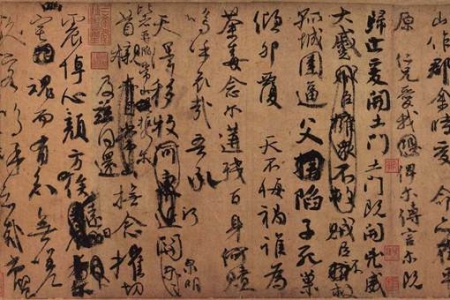 山作郡余時受 命
原 仁兄愛我恐俾爾傳言爾既
歸止爰開土門土門既開凶威
大蹙賊臣擁衆不救賊臣不救
孤城圍逼父陷子死巢
傾卵覆 天不悔禍誰為
荼毒念爾遘殘百身何贖
嗚乎哀哉吾承
天澤移牧河關 泉明
比者再陷常山攜爾
首櫬及茲同還撫念摧切
震悼心顏方俟
幽宅魂而有知無嗟
久客嗚呼哀哉尚饗